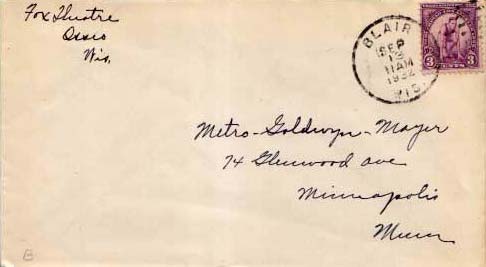 Fox Theatre
Osseo
Wis.
BLAIR
SEP
13
11AM
1932
WIS.
3 CENTS 3
Metro-Goldwyn-Mayer
74 Glenwood ave
Minneapolis
Minn
B